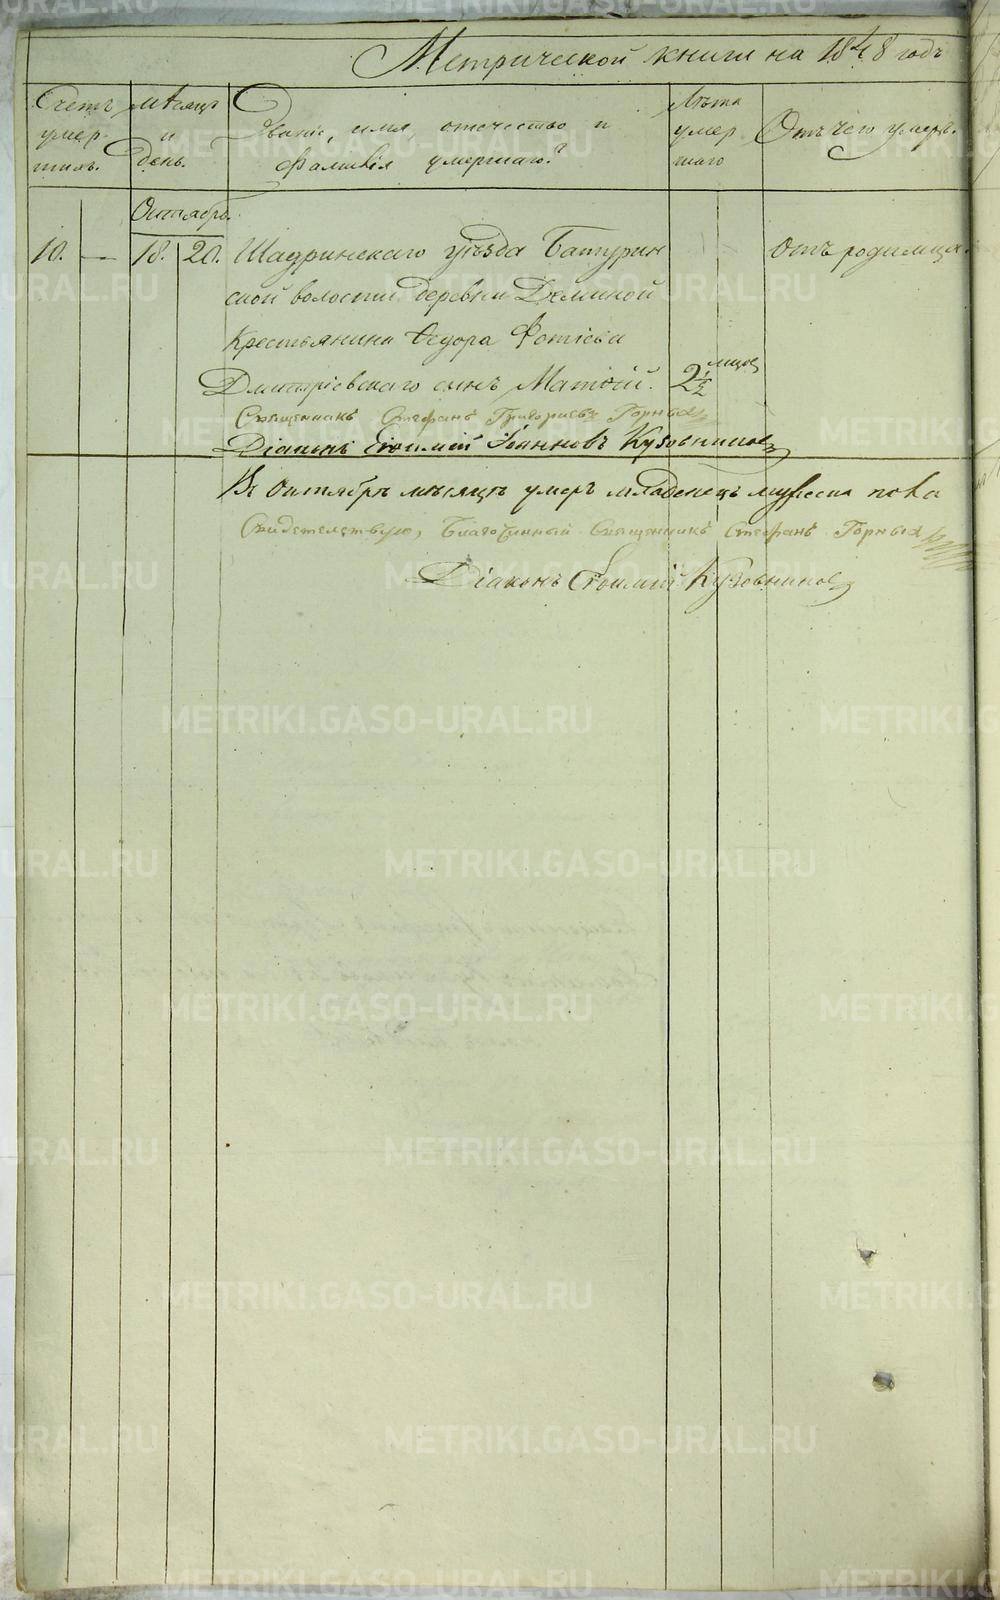 Метрической книги на 1848 годъ
Счетъ умер- шихъ.
Мѣсяцъ и день.
Званіе, имя, отечество и фамилія умершаго.
Лѣта умер шаго
Отъ чего умеръ.
Октябрь.
10. — 18. 20. Шадринскаго уѣзда Батурин отъ родимца.
ской волости деревни Деминой
Крестьянина Ѳедора Фотіева
Дмитріевскаго сынъ Матѳій. 2½ мѣсяц
Священникъ Стефанъ Григорьевъ Горныхъ
Діаконъ Евѳимій Іоанновъ Кузовниковъ
Въ Октябрѣ мѣсяцѣ умеръ младенецъ мужеска пола
Свидетельствую, Благочинный Священникъ Стефанъ Горныхъ
Діаконъ Евѳимій Кузовниковъ
METRIKI.GASO-URAL.RU